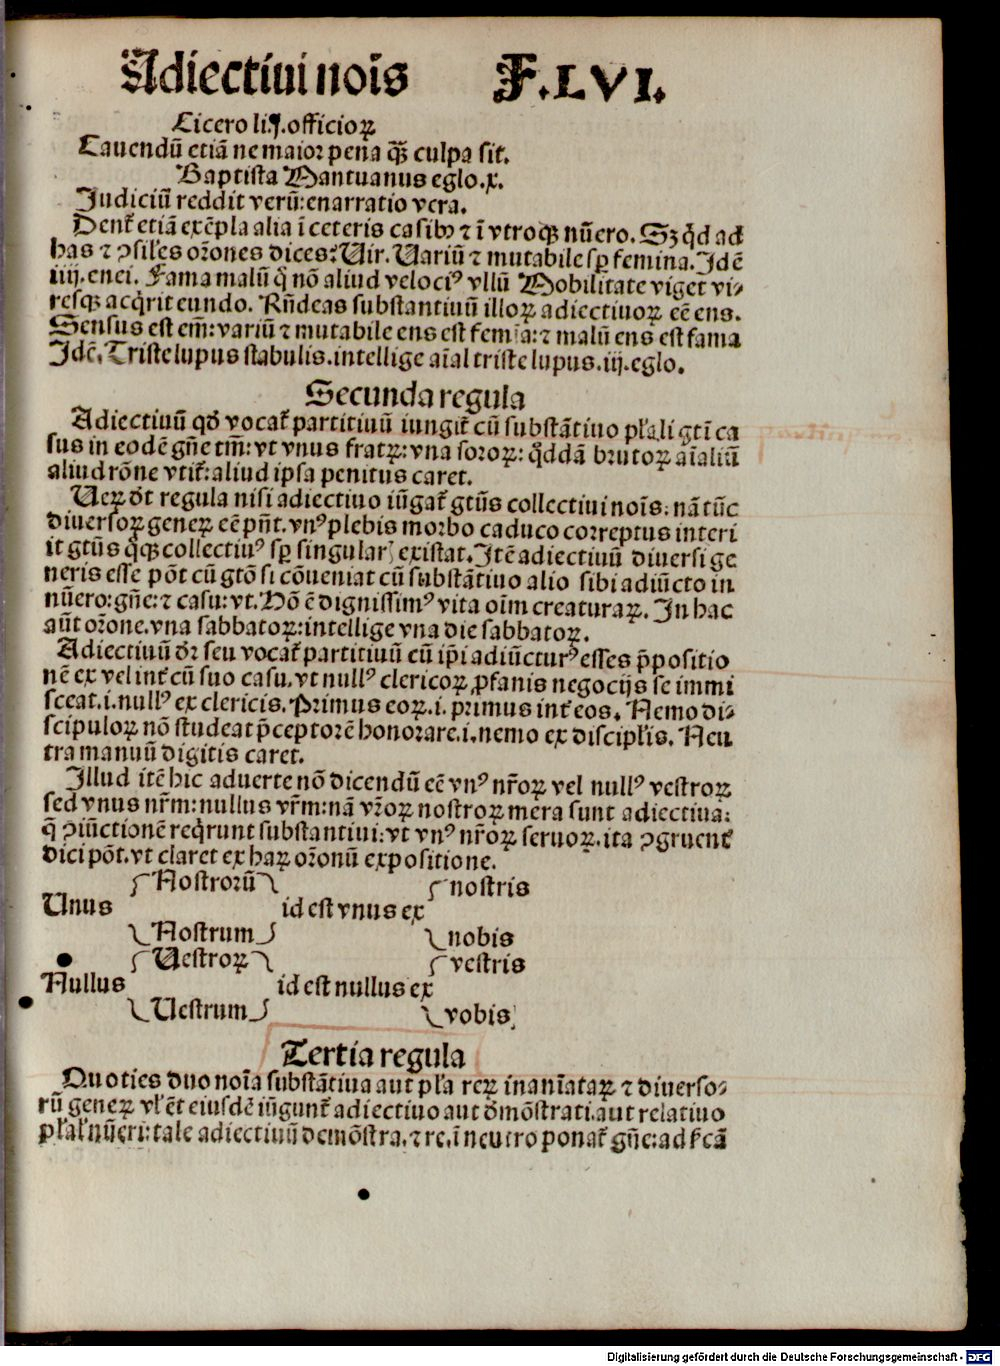 Adiectiui noīs F.LVI.
Cicero li.j.officioꝝ
Cauendū etiā ne maior pena q̄ꝫ culpa sit.
Baptista Mantuanus eglo.x.
Judiciū reddit verū:enarratio vera.
Dent᷑ etiā exēpla alia ī ceteris casibꝰ ⁊ ī vtroqꝫ nūero. Sꝫ qͥd ad
has ⁊ ꝯsiles or̄ones dices: Uir. Uariū ⁊ mutabile sꝑ femina. Idē
iiij.enei. Fama malū q̄ nō aliud velociꝰ vllū Mobilitate viget vi⸗
resqꝫ acqͥrit eundo. Rn̄deas substantiuū illoꝝ adiectiuoꝝ eē ens.
Sensus est em̄: variū ⁊ mutabile ens est femīa: ⁊ malū ens est fama
Idē. Triste lupus stabulis.intellige aīal triste lupus.iij.eglo.
Secunda regula
Adiectiuū qd̄ vocat᷑ partitiuū iungit᷑ cū substātiuo pl̄ali gtī ca
sus in eodē gn̄e tm̄: vt vnus fratꝝ: vna soroꝝ: qͥddā brutoꝝ aīaliū
aliud rōne vtit᷑: aliud ipsa penitus caret.
Ueꝝ dt̄ regula nisi adiectiuo iūgat᷑ gtūs collectiui noīs: nā tūc
diuersoꝝ geneꝝ eē pn̄t. vnꝰ plebis morbo caduco correptus interi
it gtūs qͥqꝫ collectiuꝰ sꝑ singularꝭ existat. Itē adiectiuū diuersi ge
neris esse pōt cū gtō si cōueniat cū substātiuo alio sibi adiūcto in
nūero: gn̄e: ⁊ casu: vt. Hō ē dignissimꝰ vita oīm creaturaꝝ. In hac
aūt or̄one. vna sabbatoꝝ: intellige vna die sabbatoꝝ.
Adiectiuū dr̄ seu vocat᷑ partitiuū cū ip̄i adiūcturꝰ esses p̄positio
nē ex vel int᷑ cū suo casu. vt nullꝰ clericoꝝ ꝓfanis negocijs se immi
sceat.i.nullꝰ ex clericis. Primus eoꝝ.i.primus int᷑ eos. Nemo di⸗
scipuloꝝ nō studeat p̄ceptorē honorare.i.nemo ex discipl̄is. Neu
tra manuū digitis caret.
Illud itē hic aduerte nō dicendū eē vnꝰ nr̄oꝝ vel nullꝰ vestroꝝ
sed vnus nr̄m: nullus vr̄m: nā vr̄oꝝ nostroꝝ mera sunt adiectiua:
q̄ ꝯiūctionē reqͥrunt substantiui: vt vnꝰ nr̄oꝝ seruoꝝ. ita ꝯgruent᷑
dici pōt. vt claret ex haꝝ or̄onū expositione.
Nostrorū nostris
Unus id est vnus ex
Nostrum nobis
Uestroꝝ vestris
Nullus id est nullus ex
Uestrum vobis
Tertia regula
Quoties duo noīa substātiua aut pl̄a reꝝ inanīataꝝ ⁊ diuerso⸗
rū geneꝝ vl̄ ēt eiusdē iūgunt᷑ adiectiuo aut dmōstrati.aut relatiuo
pl̄al' nūeri: tale adiectiuū demōstra.⁊ re.ī neutro ponat᷑ gn̄e: ad
Digitalisierung gefördert durch die Deutsche Forschungsgemeinschaft - DFG